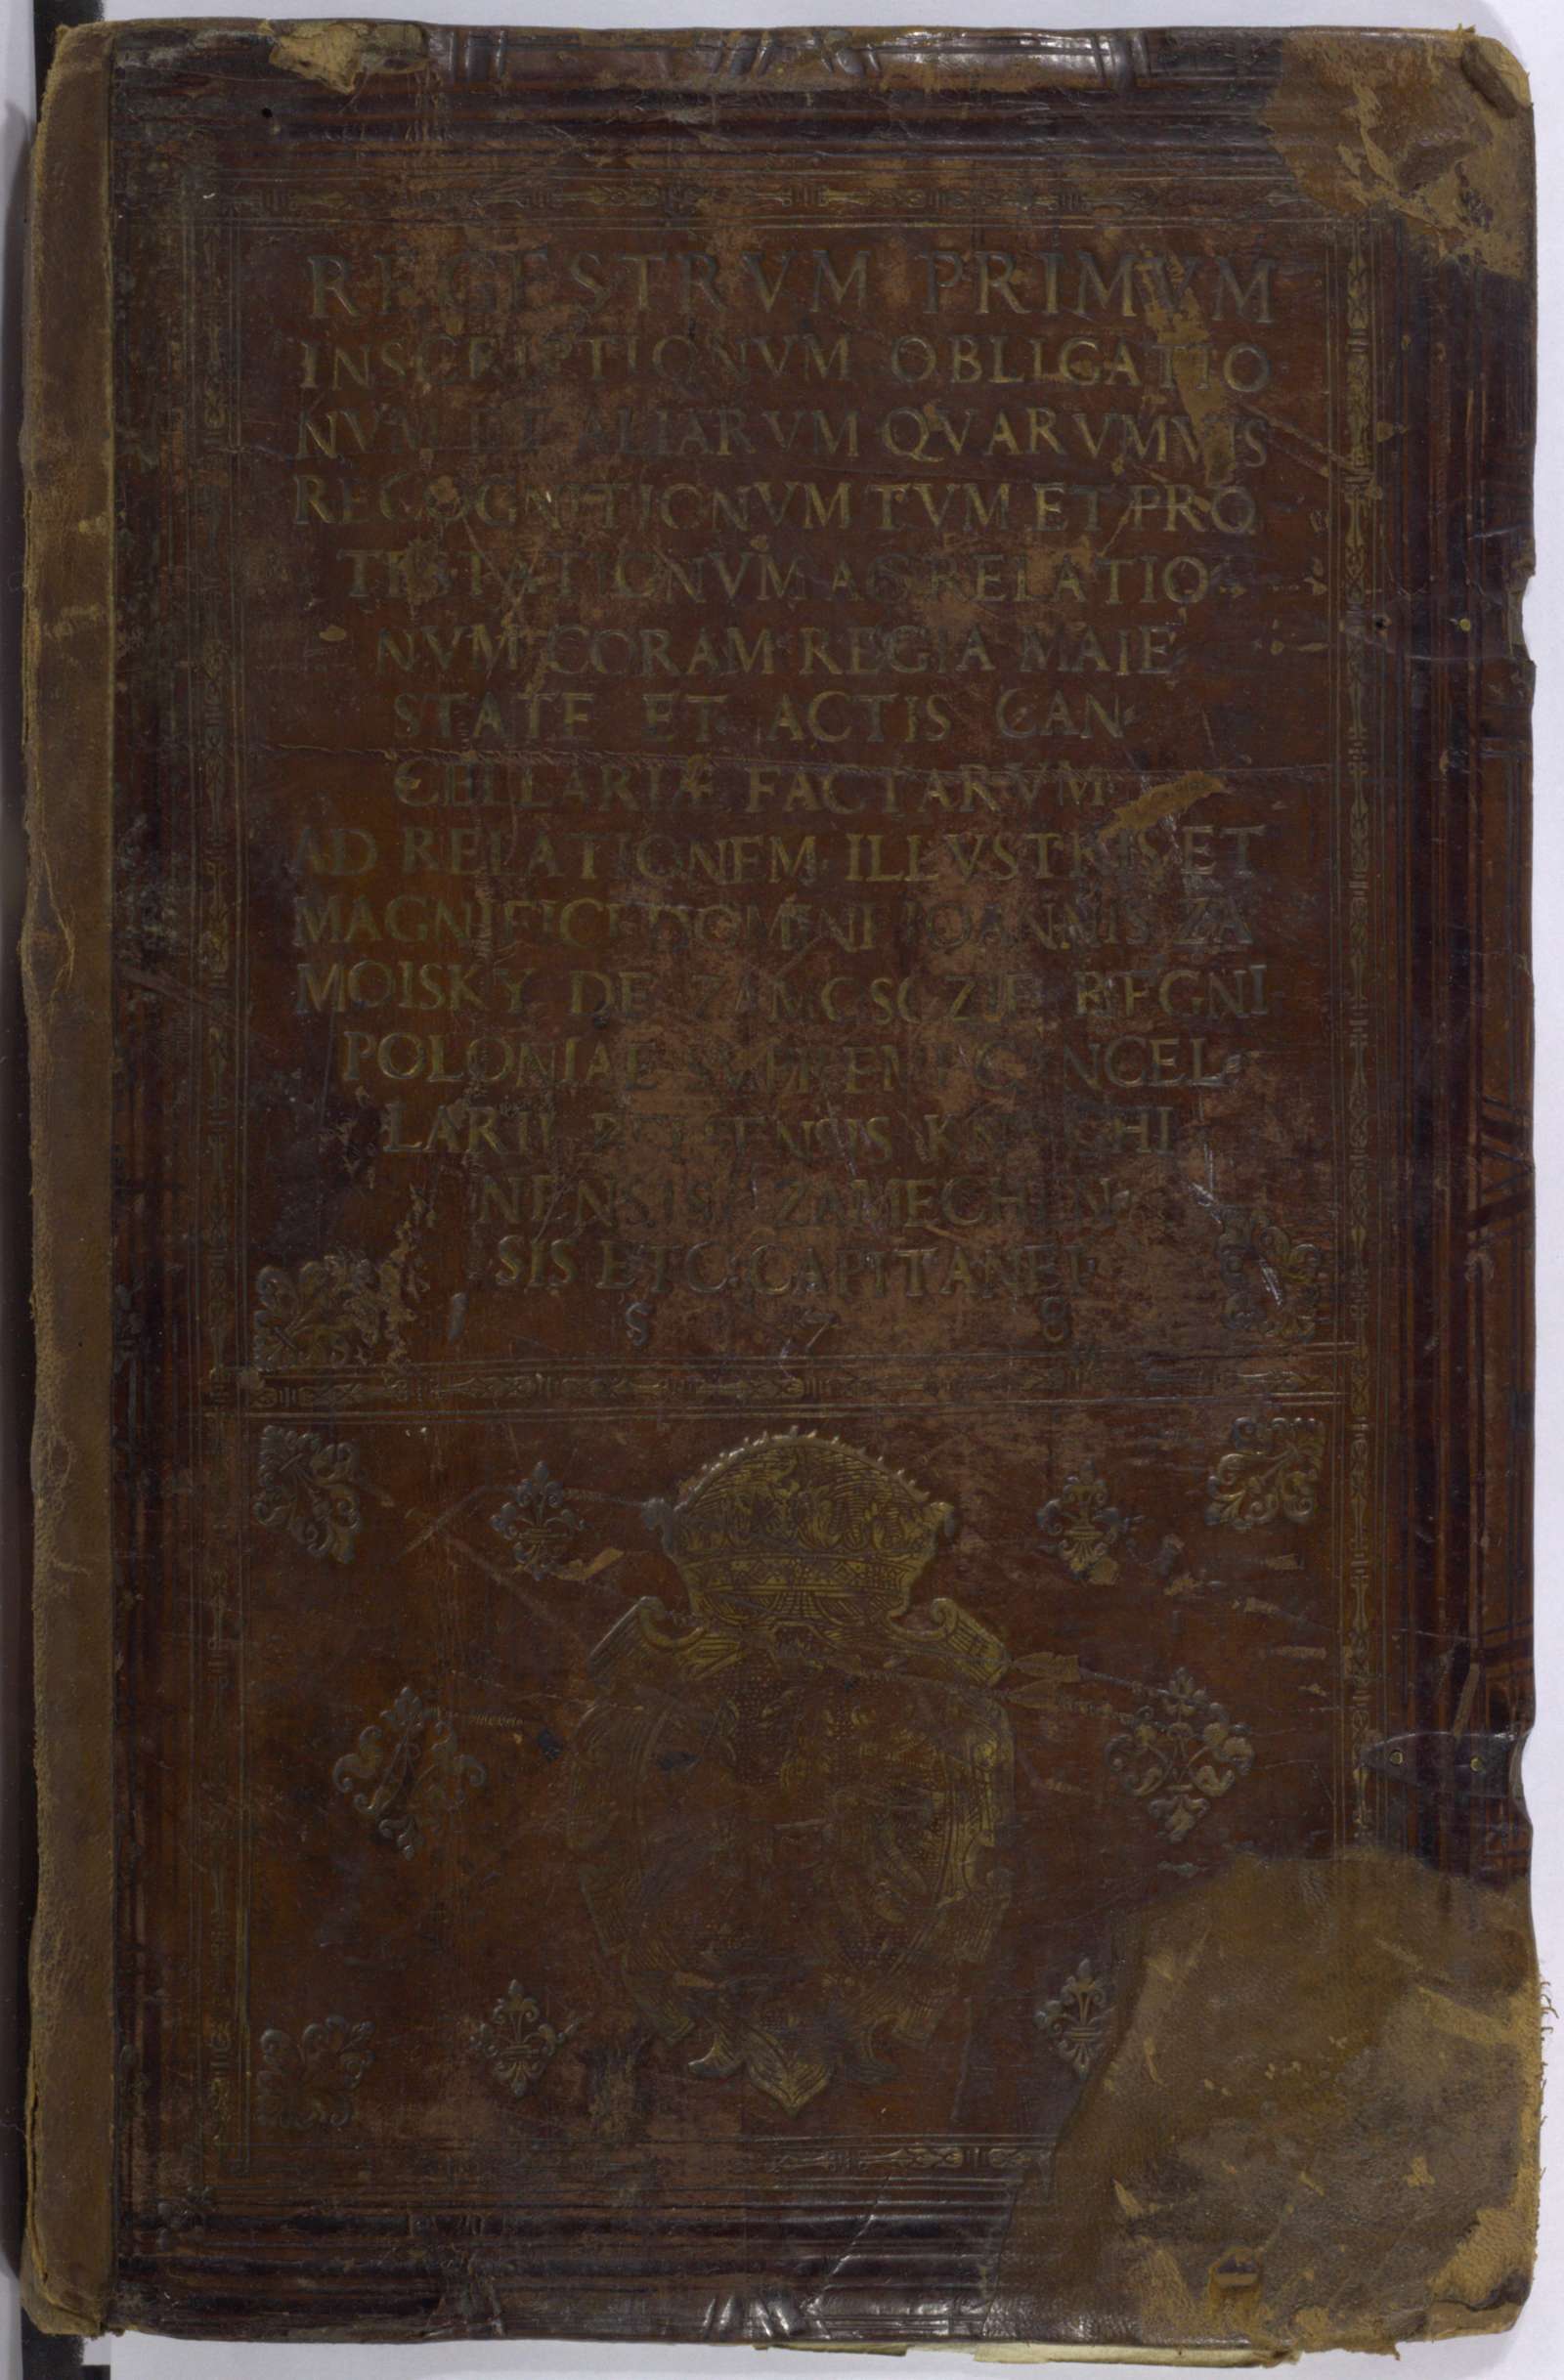 REGESTRVM PRIMVM
INSCRIPTIONVM OBLIGATIO
NVM ET ALIARVM QVARVMVIS
RECOGNITIONVM TVM ET PRO
TESTATIONVM AC RELATIO
NVM CORAM REGIA MAIE
STATE ET ACTIS CAN
CELLARIÆ FACTARVM
AD RELATIONEM ILLVSTRIS ET
MAGNIFICI DOMINI IOANNIS ZA
MOISKY DE ZAMOSCZIE REGNI
POLONIAE SVPREMI CANCEL
LARII BELZENSIS KNISCHI
NENSIS ZAMECHEN
SIS ETC CAPITANEI
1 5 7 8